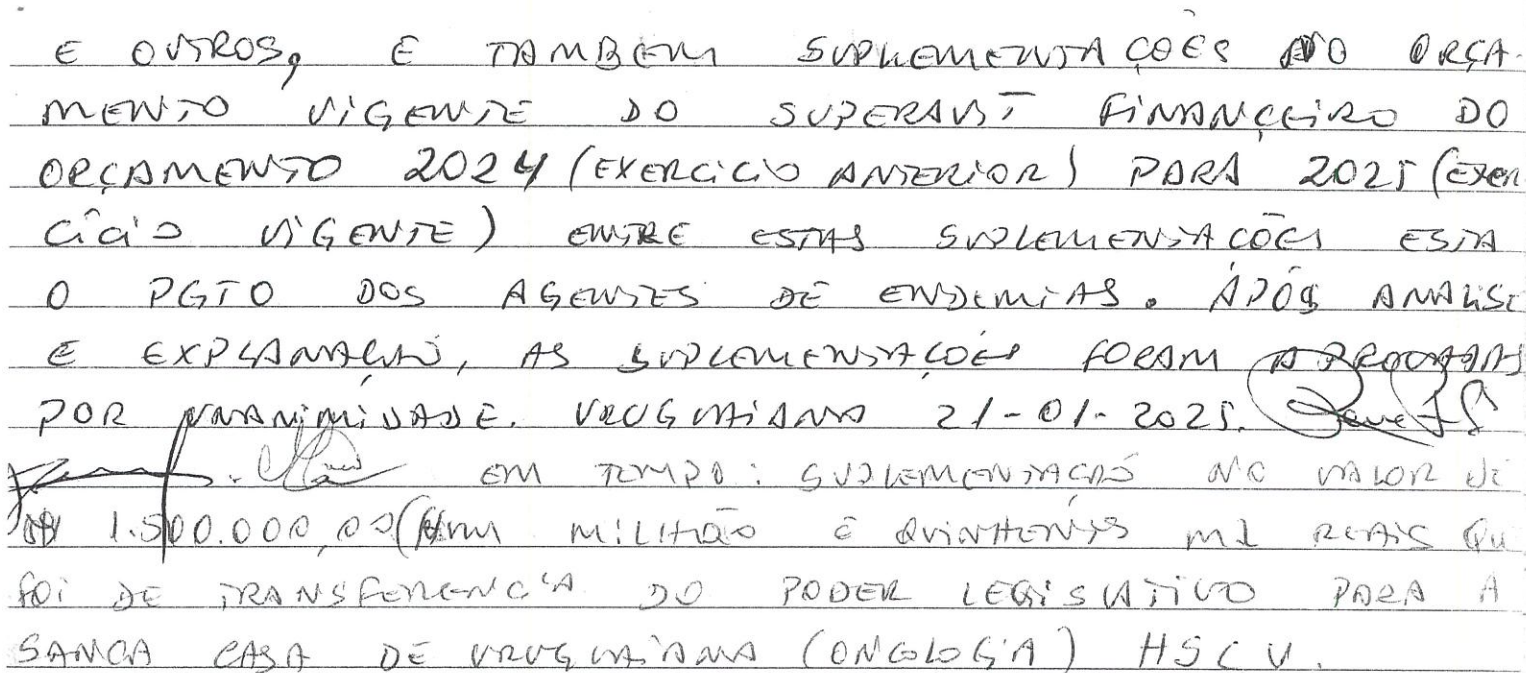 E OUTROS, E TAMBEM SUPLEMENTAÇÕES AO ORÇA-
MENTO VIGENTE DO SUPERAVIT FINANCEIRO DO
ORÇAMENTO 2024 (EXERCICIO ANTERIOR) PARA 2025 (EXER
CICIO VIGENTE) ENTRE ESTAS SUPLEMENTAÇÕES ESTA
O PGTO DOS AGENTES DE ENDEMIAS. APÓS ANALISE
E EXPLANAÇÃO, AS SUPLEMENTAÇÕES FORAM APROVADAS
POR UNANIMIDADE. URUGUAIANA 21-01-2025.
EM TEMPO: SUPLEMENTAÇÃO NO VALOR DE
1.500.000,00 (Hum MILHÃO E QUINHENTOS MIL REAIS QU
FOI DE TRANSFERENCIA DO PODER LEGISLATIVO PARA A
SANTA CASA DE URUGUAIANA (ONCOLOGIA) HSCU.